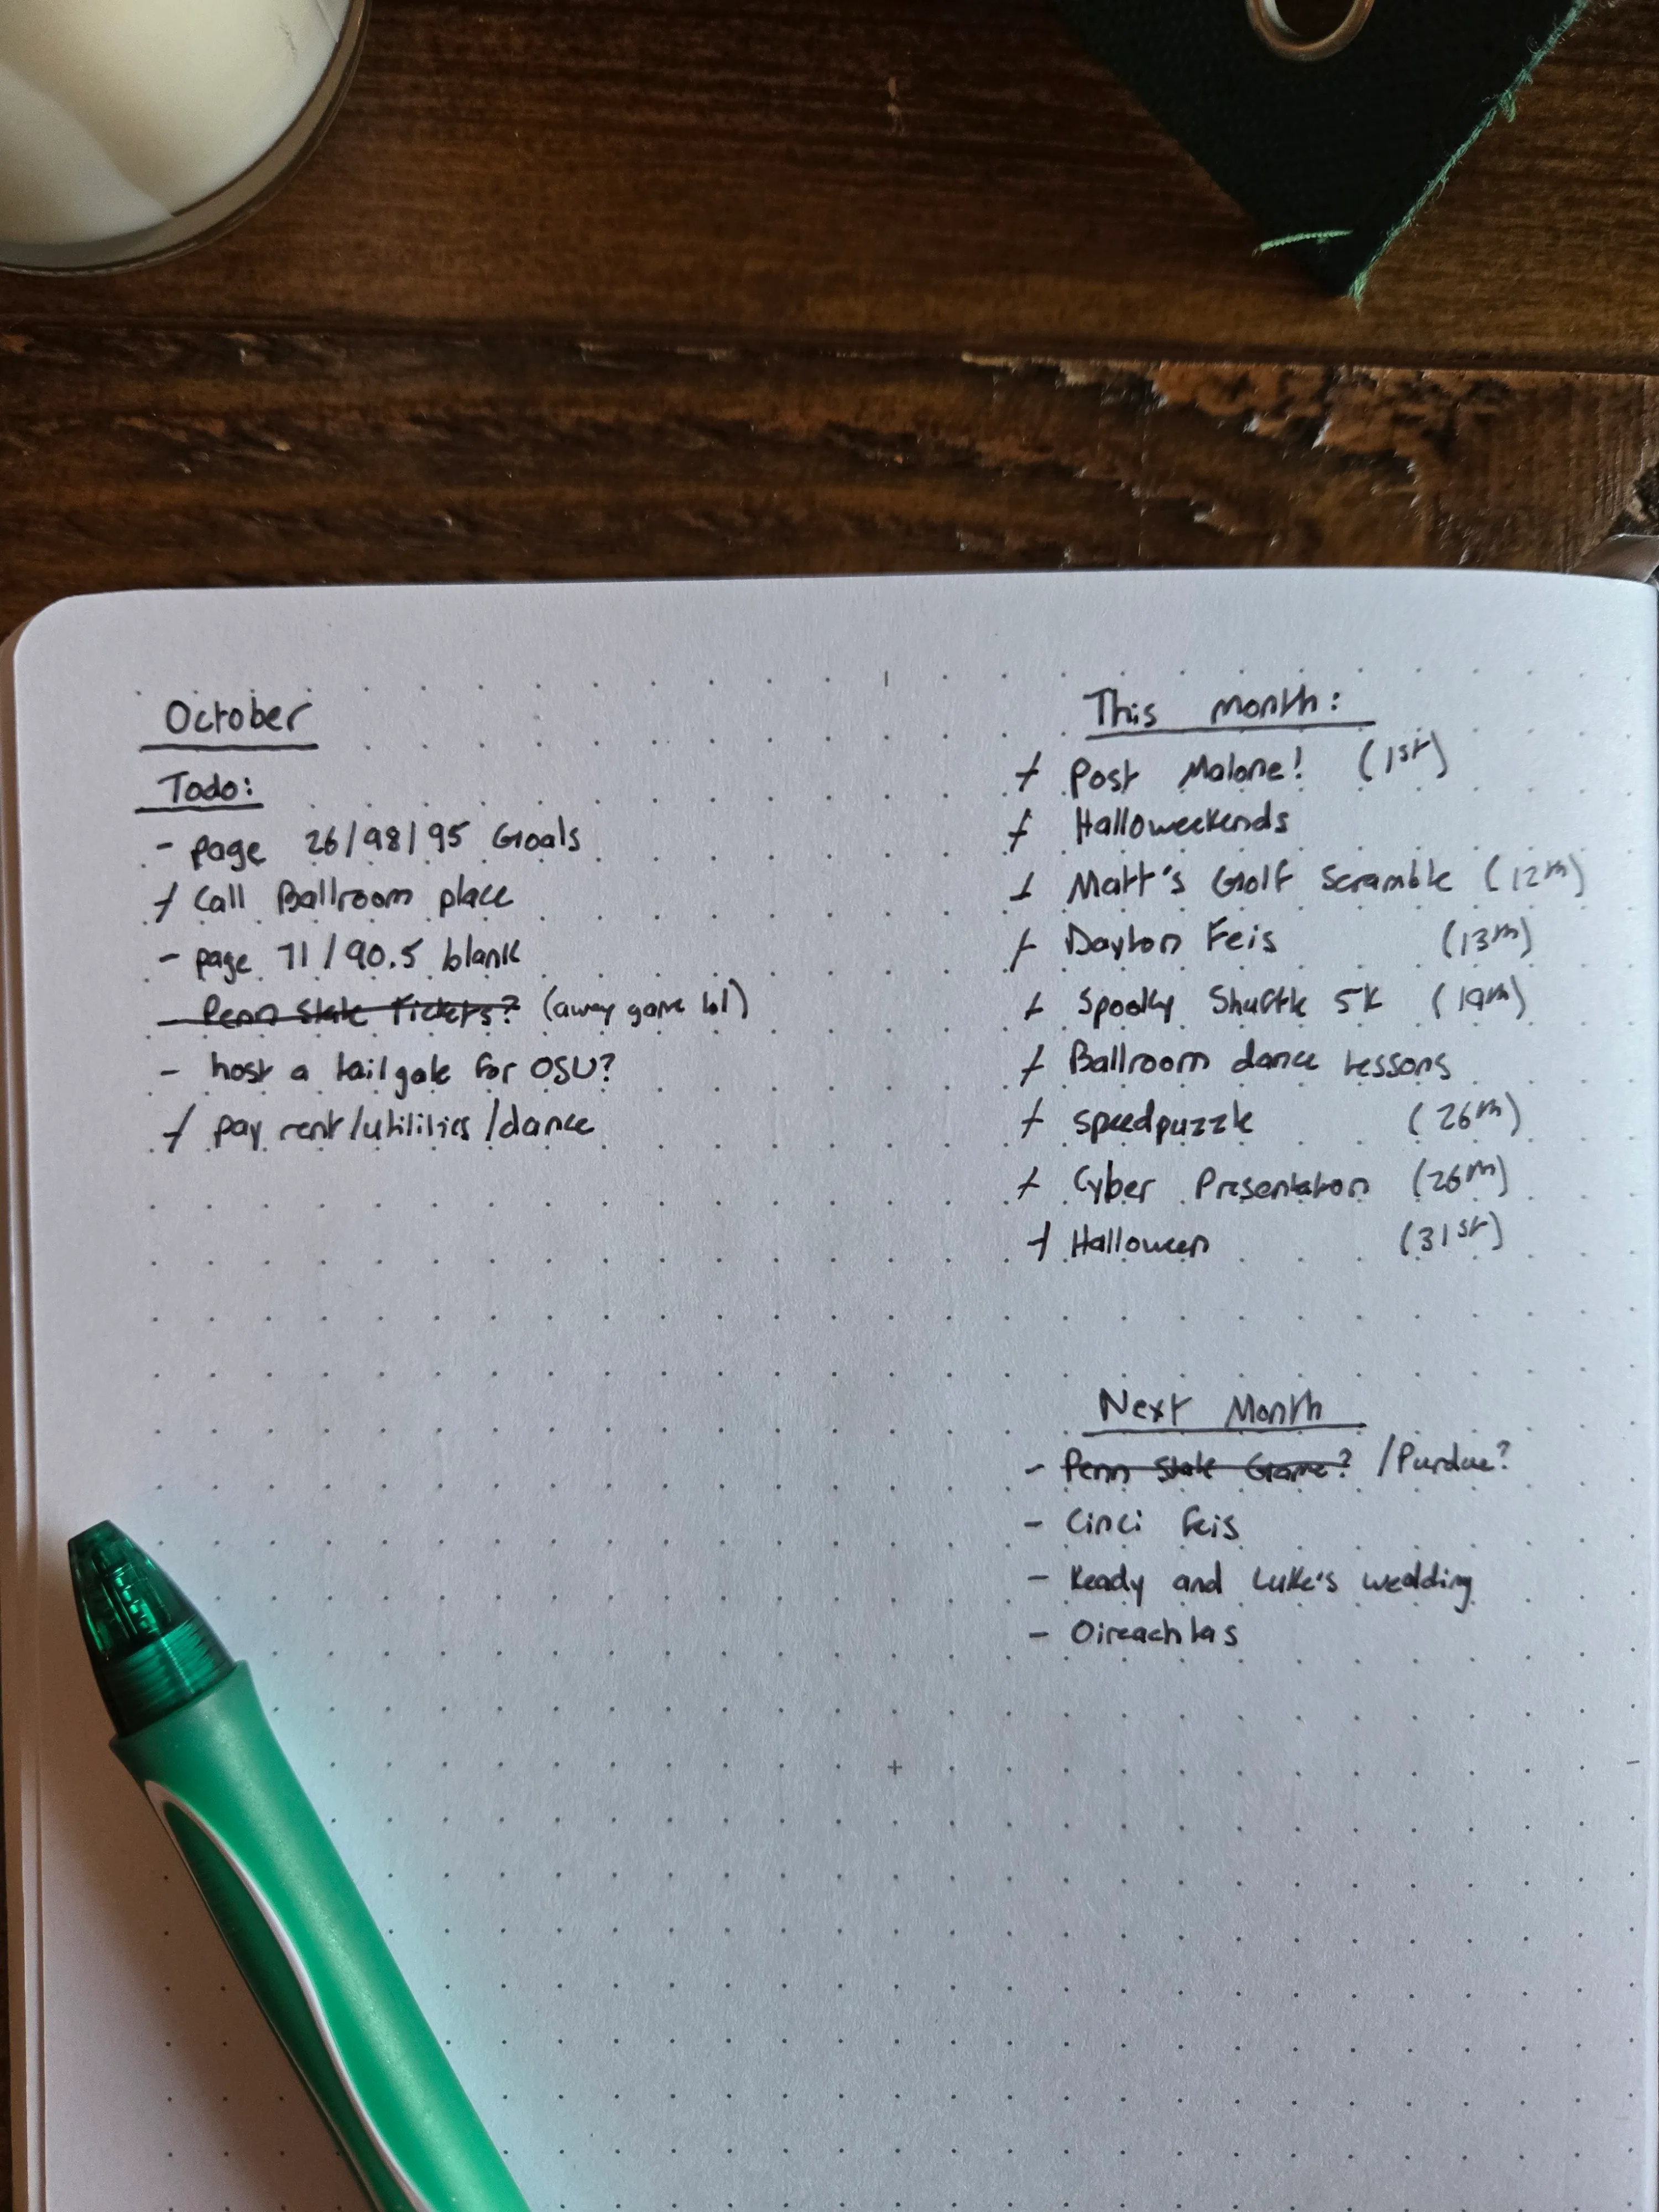 October
Todo:
- page 26/98/95 Goals
+ Call Ballroom place
- page 71/90.5 blank
- Penn State Tickets? (away game lol)
- host a tailgate for OSU?
+ pay rent/utilities/dance
This month:
+ Post Malone! (1st)
+ Halloweekends
+ Matt's Golf Scramble (12th)
+ Dayton Feis (13th)
+ Spooky Shuffle 5K (19th)
+ Ballroom dance lessons
+ Speedpuzzle (26th)
+ Cyber Presentation (26th)
+ Halloween (31st)
Next Month
- Penn State Game? /Purdue?
- Cinci Feis
- Keady and Luke's wedding
- Oireachtas